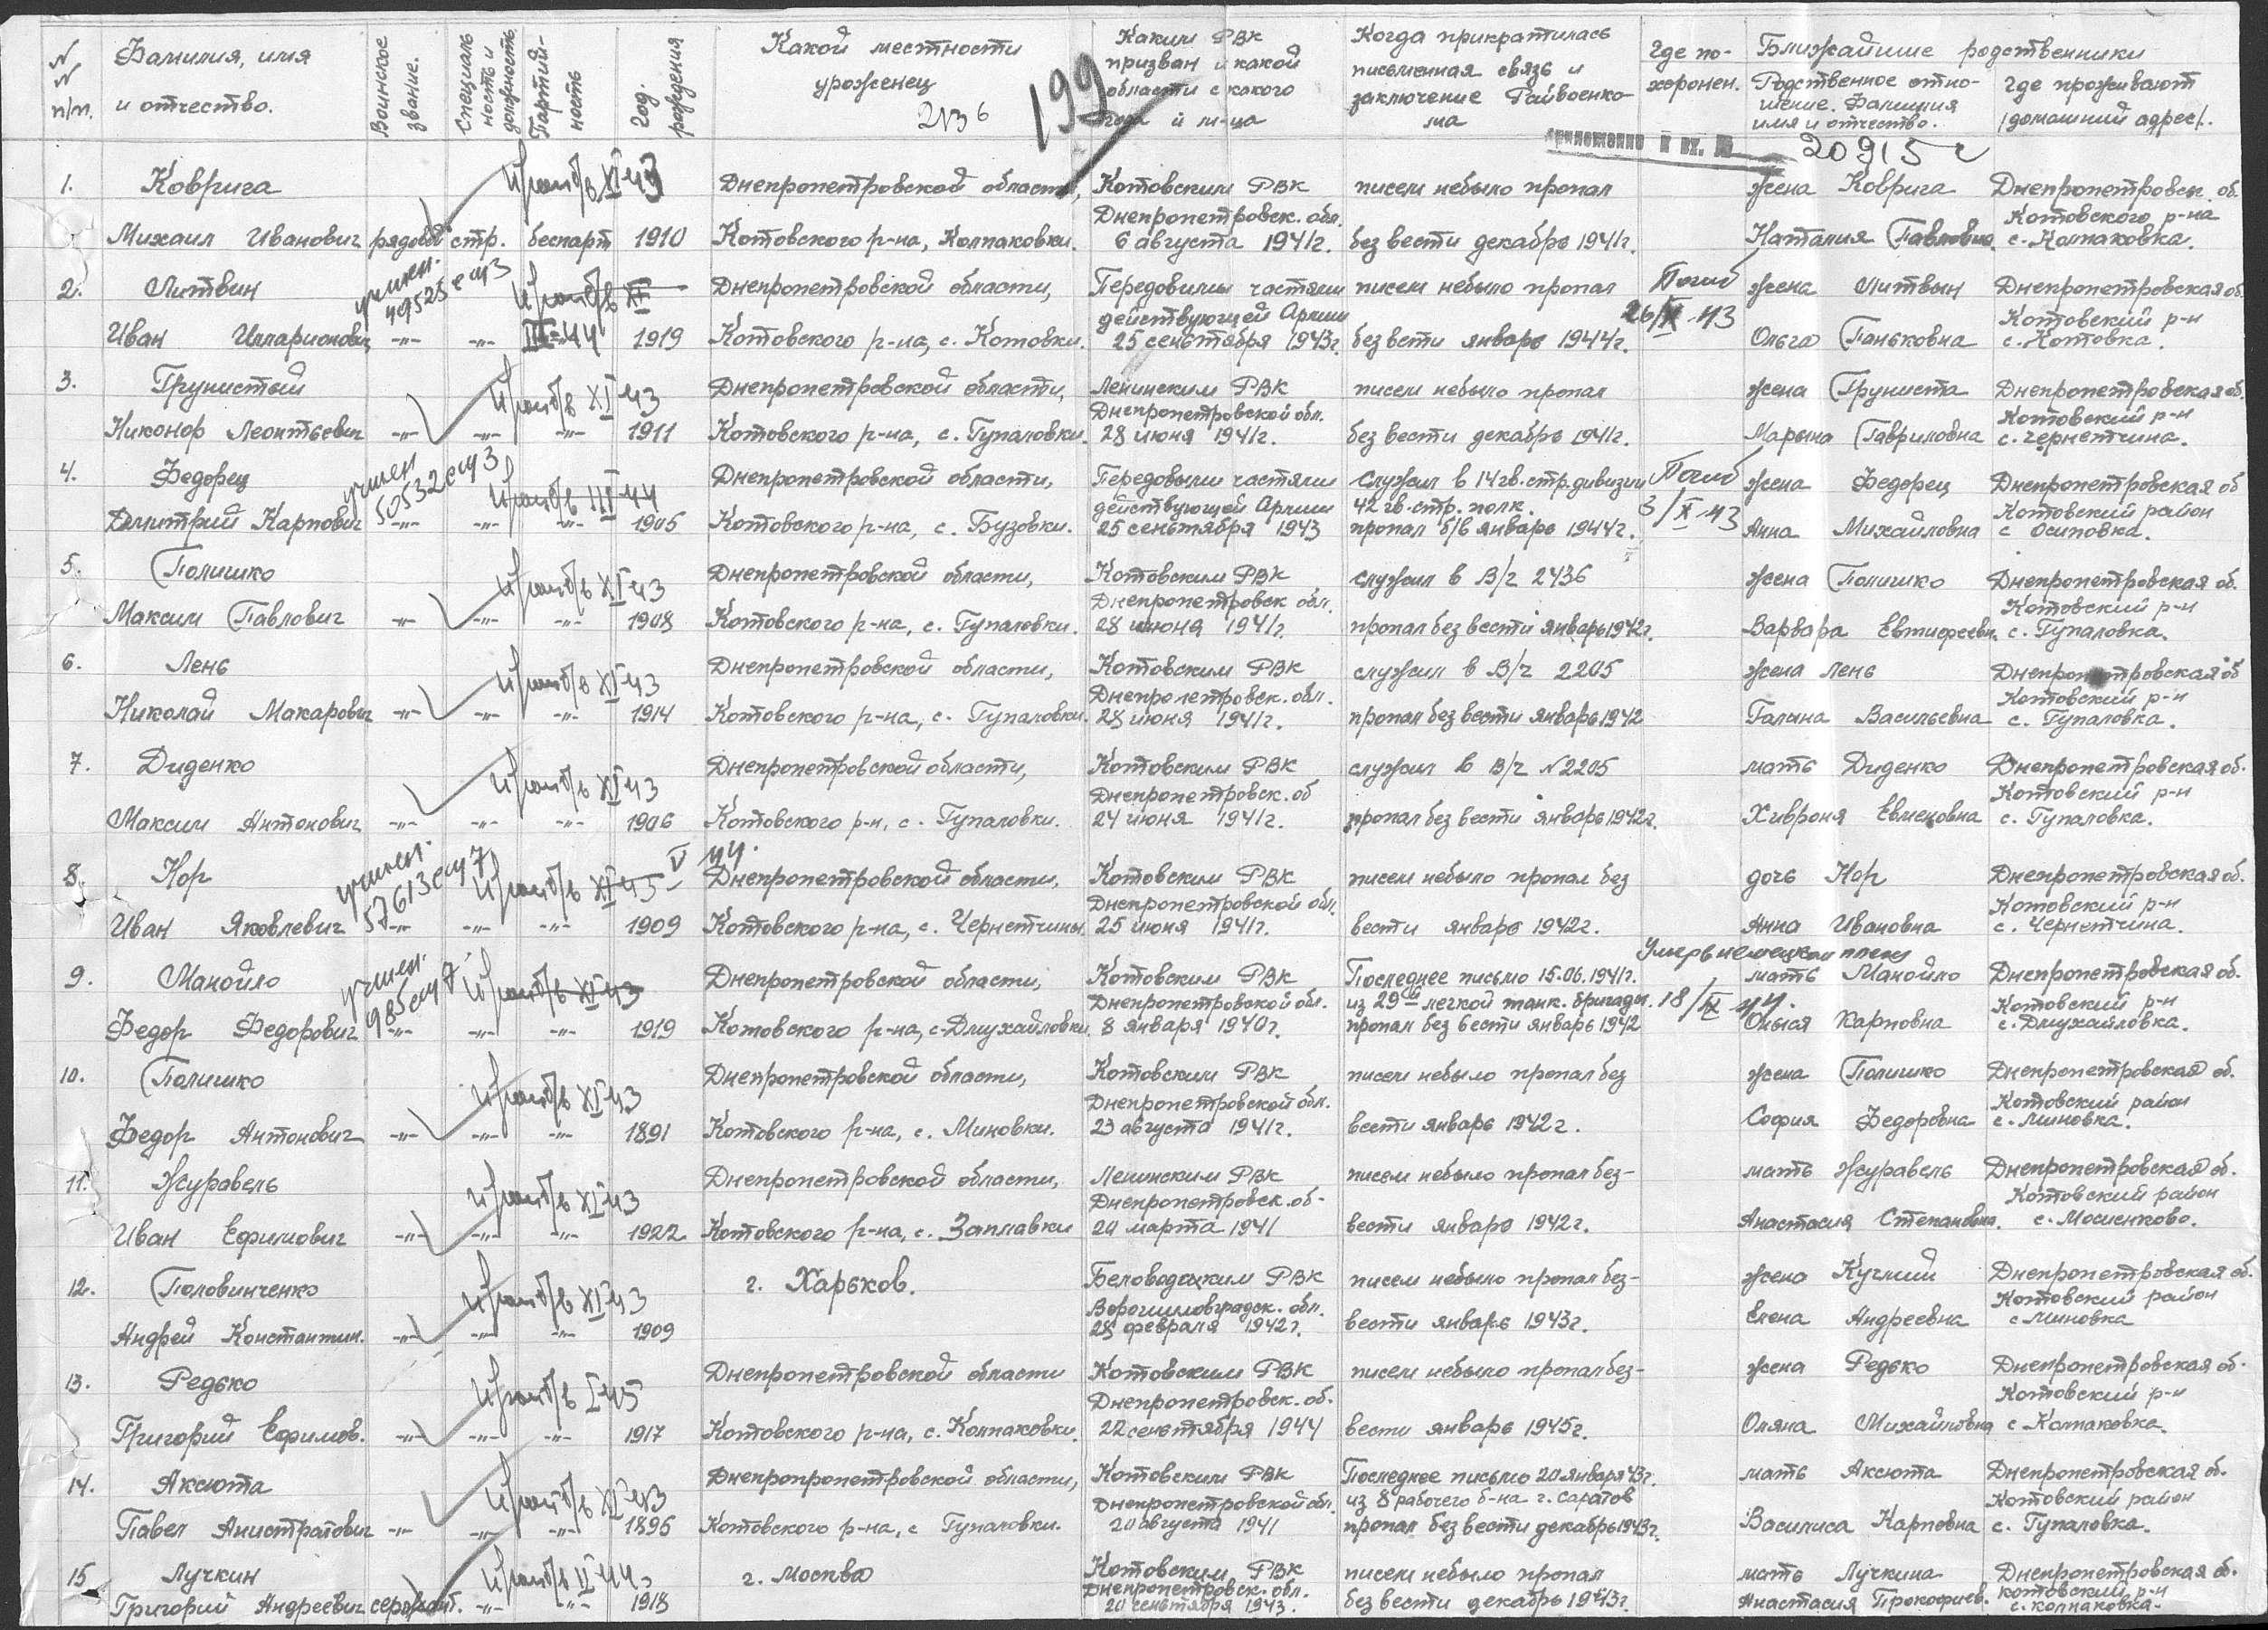 N N п/п.
Фамилия, имя и отчество.
Воинское звание.
Специальность и должность
Партийность
Год рождения
Какой местности уроженец
Каким РВК призван и какой области с какого года и м-ца
Когда прикратилась письменная связь и заключение Райвоенкома
Где похоронен.
Ближайшие родственники
Родственное отношение. Фамилия имя и отчество.
Где проживают /домашний адрес/.
199
приложение к вх. №
20915
1. Коврига XI 43 Днепропетровской области, Котовским РВК писем небыло пропал жена Коврига Днепропетровск. об.
Днепропетровск. обл. Котовского р-на
Михаил Иванович рядовой стр. беспарт 1910 Котовского р-на, Колпаковки. 6 августа 1941г. без вести декабрь 1941г. Наталия Павловна с. Колпаковка.
учтен. 49525
2. Литвин XI Днепропетровской области, Передовыми частями писем небыло пропал Погиб жена Литвын Днепропетровская об.
действующей Армии 26/X-43 Котовский р-н
Иван Илларионович -"- -"- III-44 1919 Котовского р-на, с. Котовки. 25 сеньтября 1943г. без вести январь 1944г. Ольга Паньковна с. Котовка.
3. Грунистый XI 43 Днепропетровской области, Ленинским РВК писем небыло пропал жена Груниста Днепропетровская об.
Днепропетровской обл. Котовский р-н
Никонор Леонтьевич -"- -"- -"- 1911 Котовского р-на, с. Гупаловки. 28 июня 1941г. без вести декабрь 1941г. Марына Гавриловна с. Чернетчина.
учтен 50532
4. Федорец III 44 Днепропетровской области, Передовыми частями Служил в 14 гв. стр. дивизии Погиб жена Федорец Днепропетровская об
действующей Армии 42 гв. стр. полк. 3/X-43 Котовский район
Дмитрий Карпович -"- -"- -"- 1905 Котовского р-на, с. Бузовки. 25 сеньтября 1943 пропал б/в январь 1944г. Анна Михайловна с Осиповка.
5. Полишко XI 43 Днепропетровской области, Котовским РВК служил в В/ч 2436 жена Полишко Днепропетровская об.
Днепропетровск обл. Котовский р-н
Максим Павлович -"- -"- -"- 1908 Котовского р-на, с. Гупаловки. 28 июня 1941г. пропал без вести январь 1942г. Варвара с. Гупаловка.
6. Лень XI 43 Днепропетровской области, Котовским РВК служил в В/ч 2205 жена Лень Днепропетровская об
Днепропетровск. обл. Котовский р-н
Николай Макарович -"- -"- -"- 1914 Котовского р-на, с. Гупаловки. 28 июня 1941г. пропал без вести январь 1942 Галина Васильевна с. Гупаловка.
7. Диденко XI 43 Днепропетровской области, Котовским РВК служил в В/ч N 2205 мать Диденко Днепропетровская об.
Днепропетровск. об Котовский р-н
Максим Антонович -"- -"- -"- 1906 Котовского р-н, с. Гупаловки. 24 июня 1941г. пропал без вести январь 1942г. Хивроня Евменовна с. Гупаловка.
учтен. 57613 V 44.
8. Нор XI 43 Днепропетровской области, Котовским РВК писем небыло пропал без дочь Нор Днепропетровская об.
Днепропетровской обл. Котовский р-н
Иван Яковлевич -"- -"- -"- 1909 Котовского р-на, с. Чернетчины. 25 июня 1941г. вести январь 1942г. Анна Ивановна с. Чернетчина.
учтен. 985 Умер в немецком плену
9. Манойло XI 43 Днепропетровской области, Котовским РВК Последнее письмо 15.06.1941г. мать Манойло Днепропетровская об.
Днепропетровской обл. из 29й легкой танк. бригады. 18/IX Котовский р-н
Федор Федорович -"- -"- -"- 1919 Котовского р-на, с. Дмухайловки. 8 января 1940г. пропал без вести январь 1942 Карповна с. Дмухайловка.
10. Полишко XI 43 Днепропетровской области, Котовским РВК писем небыло пропал без жена Полишко Днепропетровская об.
Днепропетровской обл. Котовский район
Федор Антонович -"- -"- -"- 1891 Котовского р-на, с. Миновки. 23 августа 1941г. вести январь 1942г. София Федоровна с. Миновка.
11. Журавель XI 43 Днепропетровской области, Ленинским РВК писем небыло пропал без- мать Журавель Днепропетровская об.
Днепропетровск. об- Котовский район
Иван Ефимович -"- -"- -"- 1922 Котовского р-на, с. Заплавки 20 марта 1941 вести январь 1942г. Анастасия Степановна. с. Мосиенково.
12. Половинченко XI 43 г. Харьков. Беловодским РВК писем небыло пропал без- жена Куглий Днепропетровская об.
Ворошиловградск. обл. Котовский район
Андрей Константин. -"- -"- -"- 1909 28 февраля 1942г. вести январь 1943г. Елена Андреевна с Миновка
13. Редько I 45 Днепропетровской области Котовским РВК писем небыло пропал без- жена Редько Днепропетровская об.
Днепропетровск. об. Котовский р-н
Григорий Ефимов. -"- -"- -"- 1917 Котовского р-на, с. Колпаковки. 22 сеньтября 1944 вести январь 1945г. Оляна Михайловна с Колпаковка.
14. Аксюта XI 43 Днепропропетровской области, Котовским РВК Последнее письмо 20 января 43г. мать Аксюта Днепропетровская об.
Днепропетровской обл. из 8 рабочего б-на г. Саратов Котовский район
Павел Анистратович -"- -"- -"- 1896 Котовского р-на, с Гупаловки. 20 августа 1941 пропал без вести декабрь 1943г. Василиса Карповна с. Гупаловка.
15 Лучкин II 44 г. Москва Котовским РВК писем небыло пропал мать Лучкина Днепропетровская об.
Днепропетровск. обл. Котовский р-н
Григорий Андреевич сержант. -"- -"- 1918 20 сеньтября 1943. без вести декабрь 1943г. Анастасия Прокофиев. с. Колпаковка.